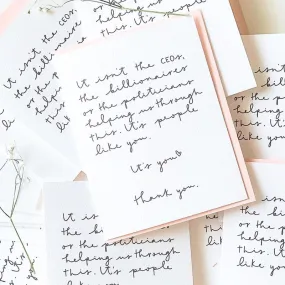 It isn't the CEOs,
the billionaires
or the politicians
helping us through
this. It's people
like you.
It's you
thank you.
It isn't the CEOs,
the billionaires
or the
helping
this.
It is
the bil
or the politicians
helping us through
this. It's people
like
the
or the
helping
this. It's people
like you.